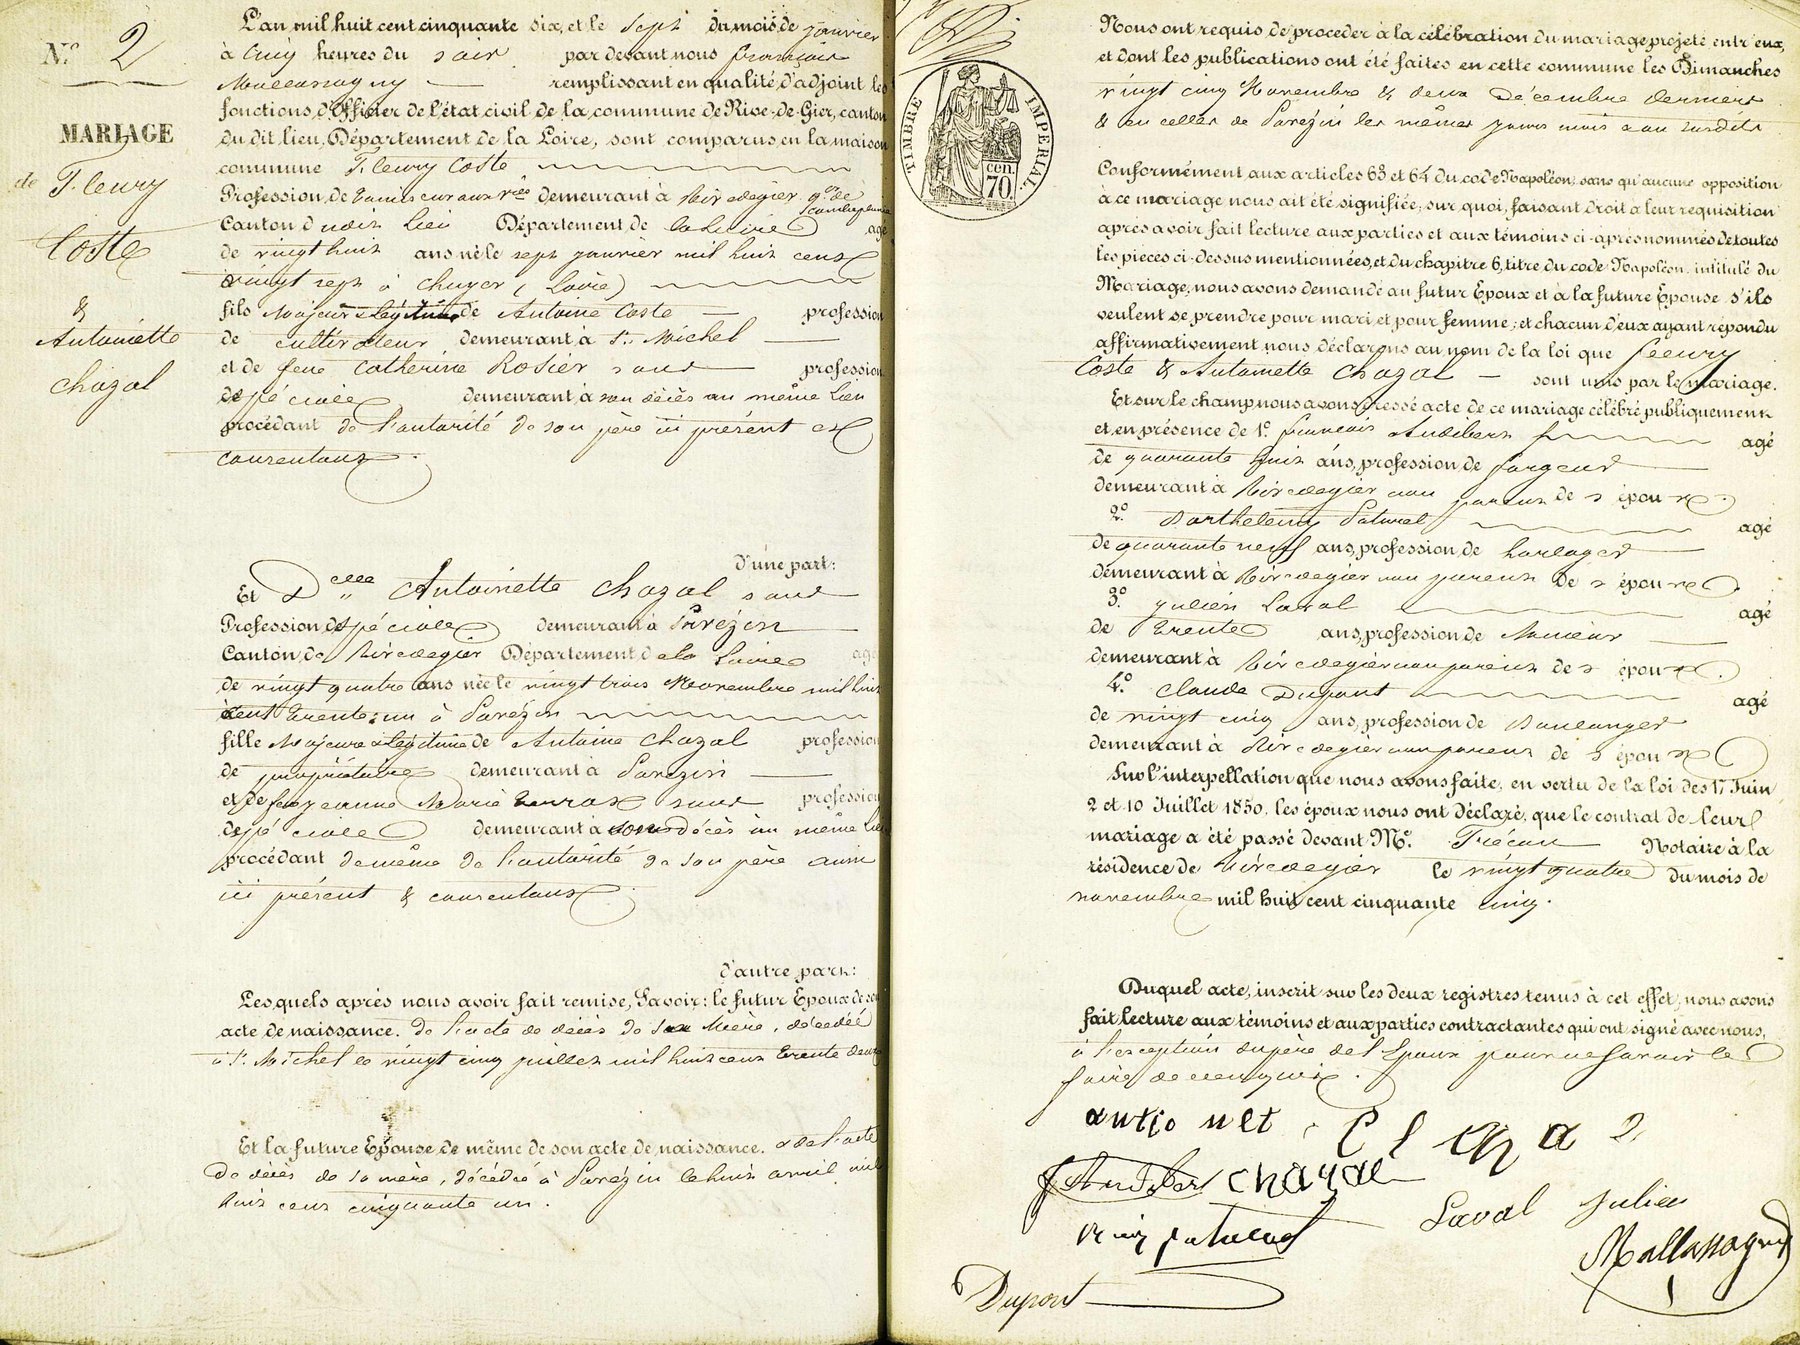 N.º 2
MARIAGE
de Fleury
Coste
&
Antoinette
Chazal
L'an mil huit cent cinquante six, et le sept du mois de janvier
à cinq heures du soir par devant nous françois
Mallassagny remplissant en qualité d'adjoint les
fonctions d'Officier de l'état civil de la commune de Rive-de-Gier, canton
du dit lieu, Département de la Loire, sont comparus en la maison
commune Fleury Coste
Profession de demeurant à Rivedegier
Canton dudit lieu Département de la Loire agé
de vingt huit ans né le sept janvier mil huit cent
vingt sept à Chuyer (Loire)
fils Majeur & légitime de Antoine Coste profession
de cultivateur demeurant à St. Michel
et de feue Catherine Rosier sans profession
spéciale demeurant à son décès au même lieu
procédant de l'autorité de son père ici présent et
consentant.
d'une part:
Et Delle Antoinette Chazal sans
Profession spéciale demeurant à Pavézin
Canton de Rivedegier Département de la Loire agé
de vingt quatre ans née le vingt trois Novembre mil huit
cent trente un à Pavézin
fille Majeure & légitime de Antoine Chazal profession
de propriétaire demeurant à Pavézin
et de feue jeanne Marie sans profession
spéciale demeurant à son décès au même lieu
procédant de même de l'autorité de son père aussi
ici présent & consentant.
d'autre part:
Lesquels après nous avoir fait remise, Savoir: le futur Epoux de son
acte de naissance. de l'acte de décès de sa Mère, décédée
à St. Michel le vingt cinq juillet mil huit cent trente deux
Et la future Epouse de même de son acte de naissance. & de l'acte
de décès de sa mère, décédée à Pavézin le huit avril mil
huit cent cinquante un.
TIMBRE IMPERIAL
70 cen.
Nous ont requis de procéder à la célébration du mariage projeté entr'eux,
et dont les publications ont été faites en cette commune les Dimanches
vingt cinq Novembre & deux Décembre derniers
& en celles de Pavézin les mêmes jours mois & an susdits
Conformément aux articles 63 et 64 du code Napoléon, sans qu'aucune opposition
à ce mariage nous ait été signifiée, sur quoi, faisant droit à leur requisition
après avoir fait lecture aux parties et aux témoins ci-après nommés de toutes
les pièces ci-dessus mentionnées, et du chapitre 6, titre du code Napoléon intitulé du
Mariage, nous avons demandé au futur Epoux et à la future Epouse s'ils
veulent se prendre pour mari et pour femme; et chacun d'eux ayant répondu
affirmativement, nous déclarons au nom de la loi que fleury
Coste & Antoinette Chazal sont unis par le mariage.
Et sur le champ nous avons dressé acte de ce mariage célébré publiquement
et en présence de 1º. françois Audibert agé
de quarante huit ans, profession de forgeur
demeurant à Rivedegier non parent de s époux.
2º. Barthelemy Paturel agé
de quarante neuf ans, profession de horloger
demeurant à Rivedegier non parent de s époux
3º. julien Laval agé
de trente ans, profession de Mineur
demeurant à Rivedegier non parent de s époux.
4º. Claude Dupont agé
de vingt cinq ans, profession de Boulanger
demeurant à Rivedegier non parent de s époux
Sur l'interpellation que nous avons faite, en vertu de la loi des 17 Juin
2 et 10 Juillet 1850, les époux nous ont déclaré, que le contrat de leur
mariage a été passé devant Me. Notaire à la
résidence de Rivedegier le vingt quatre du mois de
novembre mil huit cent cinquante cinq.
Duquel acte, inscrit sur les deux registres tenus à cet effet, nous avons
fait lecture aux témoins et aux parties contractantes qui ont signé avec nous,
à l'exception du père de l'Epoux pour ne savoir le
faire de ce enquis.
chazal
Laval julien
Mallassagny
Dupont